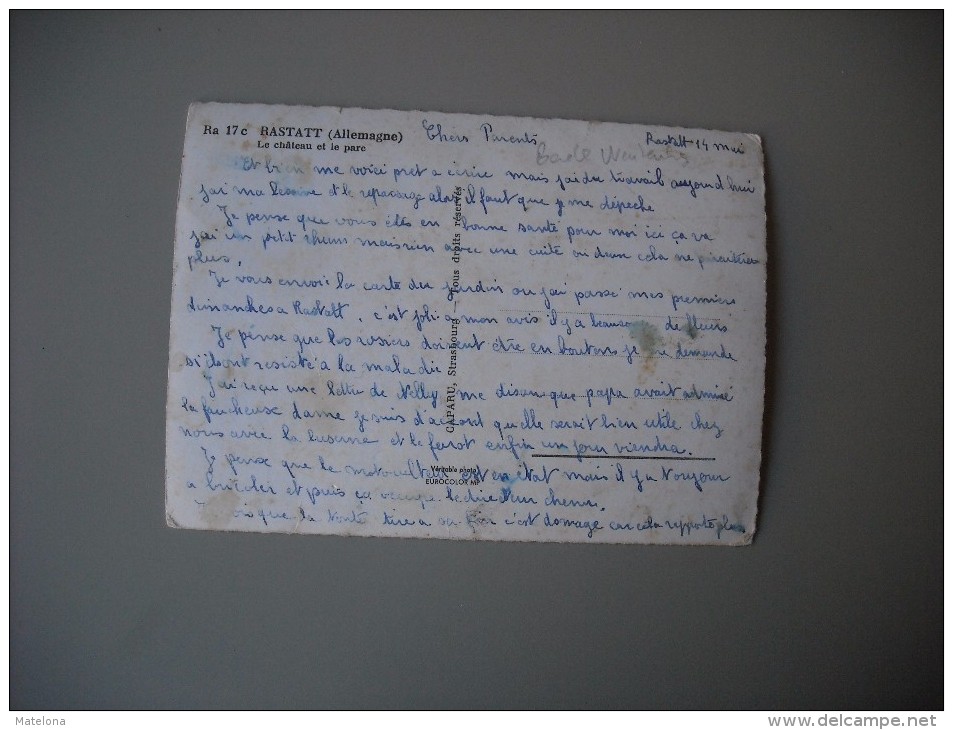 Ra 17c RASTATT (Allemagne)
Le château et le parc
Chers Parents
Rastatt 14 mai
Et bien me voici pret a ecrire mais j'ai du travail aujourd'hui
j'ai ma et le repassage alors il faut que je me dépeche
Je pense que vous êtes en bonne santé pour moi ici ça va
j'ai un petit rhum mais rien avec une cuite ou deux cela ne
plus.
Je vous envoi la carte du jardin ou j'ai passé mes premiers
dimanches a Rastatt, c'est joli a mon avis il y a beaucoup de fleurs
Je pense que les rosiers doivent être en boutons je me demande
s'il ont resisté a la maladie
J'ai reçu une lettre de Nelly me disan que papa avait admiré
la faucheuse dame je suis d'accord qu'elle serait bien utile chez
nous avec la luzerne et le enfin un jour viendra.
Je pense que le motoculteur est en état mais il y a toujour
a bricoler et puis ça occupe
que la tire a sa fin c'est domage car cela rapporte plus
CAPARU, Strasbourg — Tous droits réservés
Véritable photo
EUROCOLOR MF
Matelona
www.delcampe.net